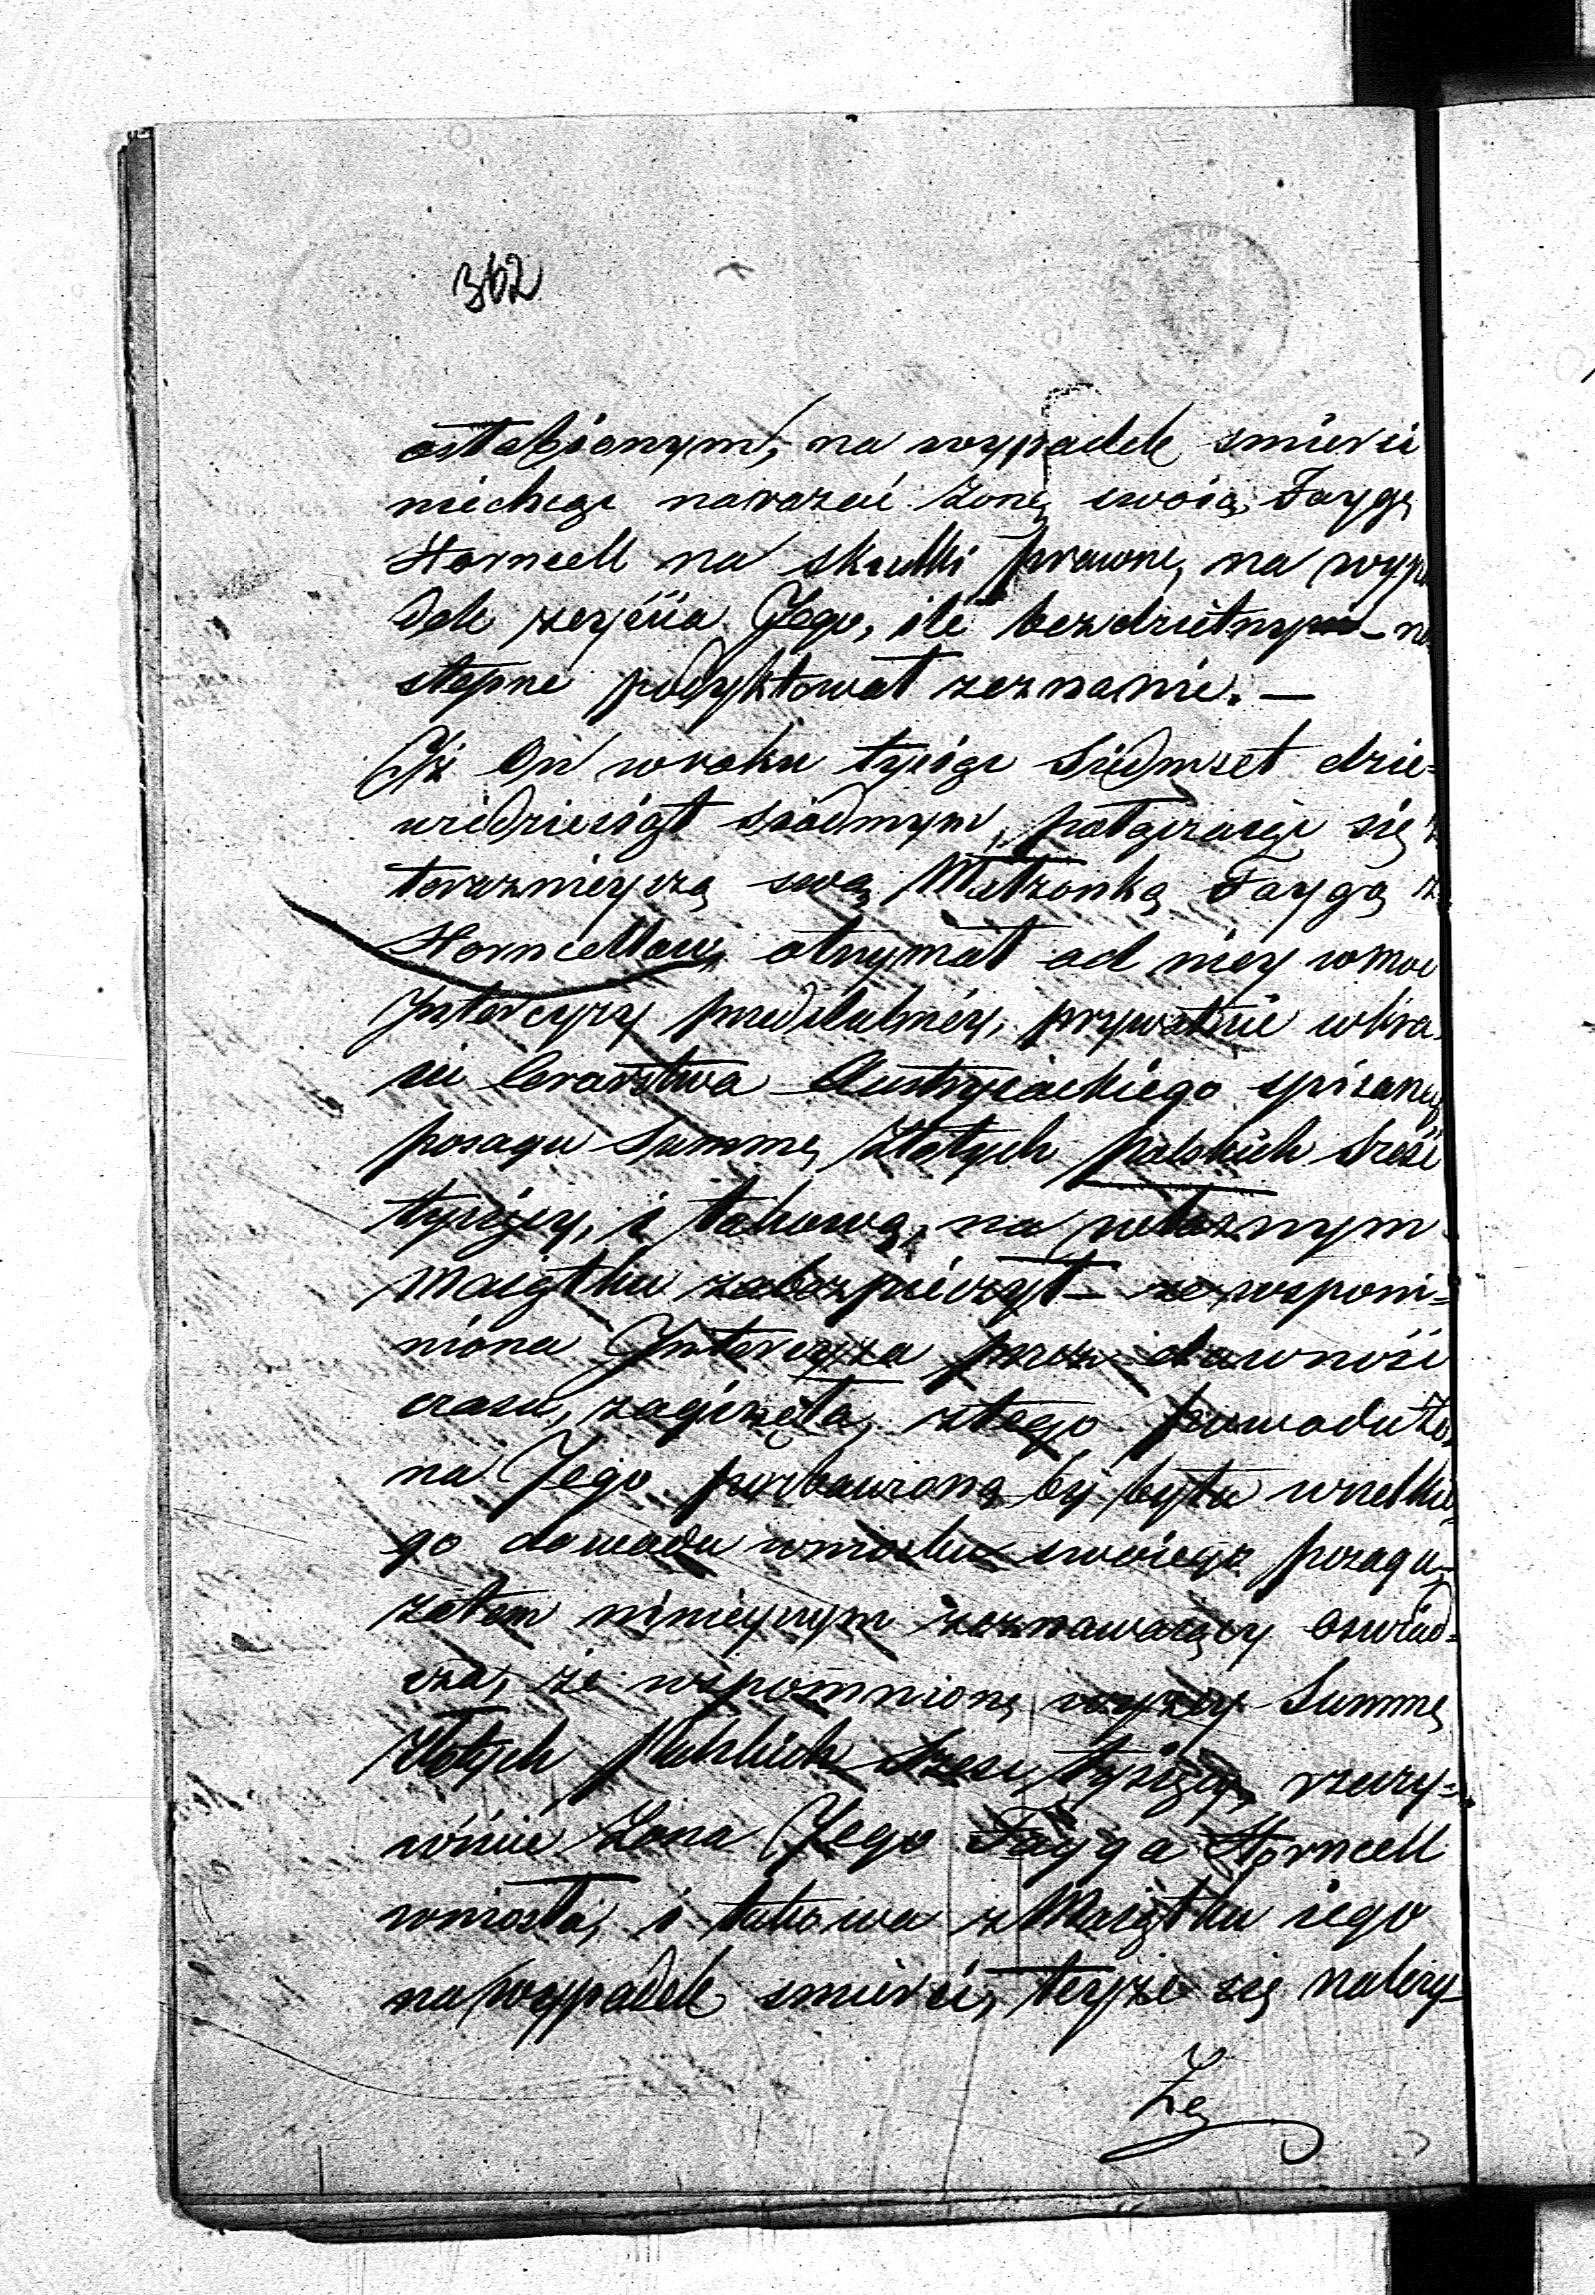 362
osłabionym, na wypadek smierci
niechcąc narazać żonę swoią Faygę
Horncell na skutki prawne, na wypa
dek zeyścia Jego, ile bezdzietny na
stępne podyktował zeznanie. —
Iż On w roku tysiąc Siedmset dzie=
więdziesiąt siódmym, połącząiąc się z
teraznieyszą swą Małżonką Faygą z
Horncellów, otrzymał od niey w moc
Intercyzy przedślubnéy, prywatnie w Cza
sie Cesarstwa Austryiackiego spisaney
posagu Summę Złotych polskich Sześć
tysięcy, i takową, na własnym
Maiątku zabezpieczył — że wspom=
niona Intercyza przez dawność
czasu, zaginęła, z tego powodu Żo
na Jego pozbawioną by była wszelkie
go dowodu wniosku swoiego posagu,
zatem ninieyszym zeznawaiący oswiad=
cza, że wspomnionę wyżey Summę
Złotych Polskich Sześć tysięcy, rzeczy=
wiście Żona Jego Fayga Horncell
wniosła, i takowa z Maiątku iego
na wypadek smierci, teyże się należy
Że